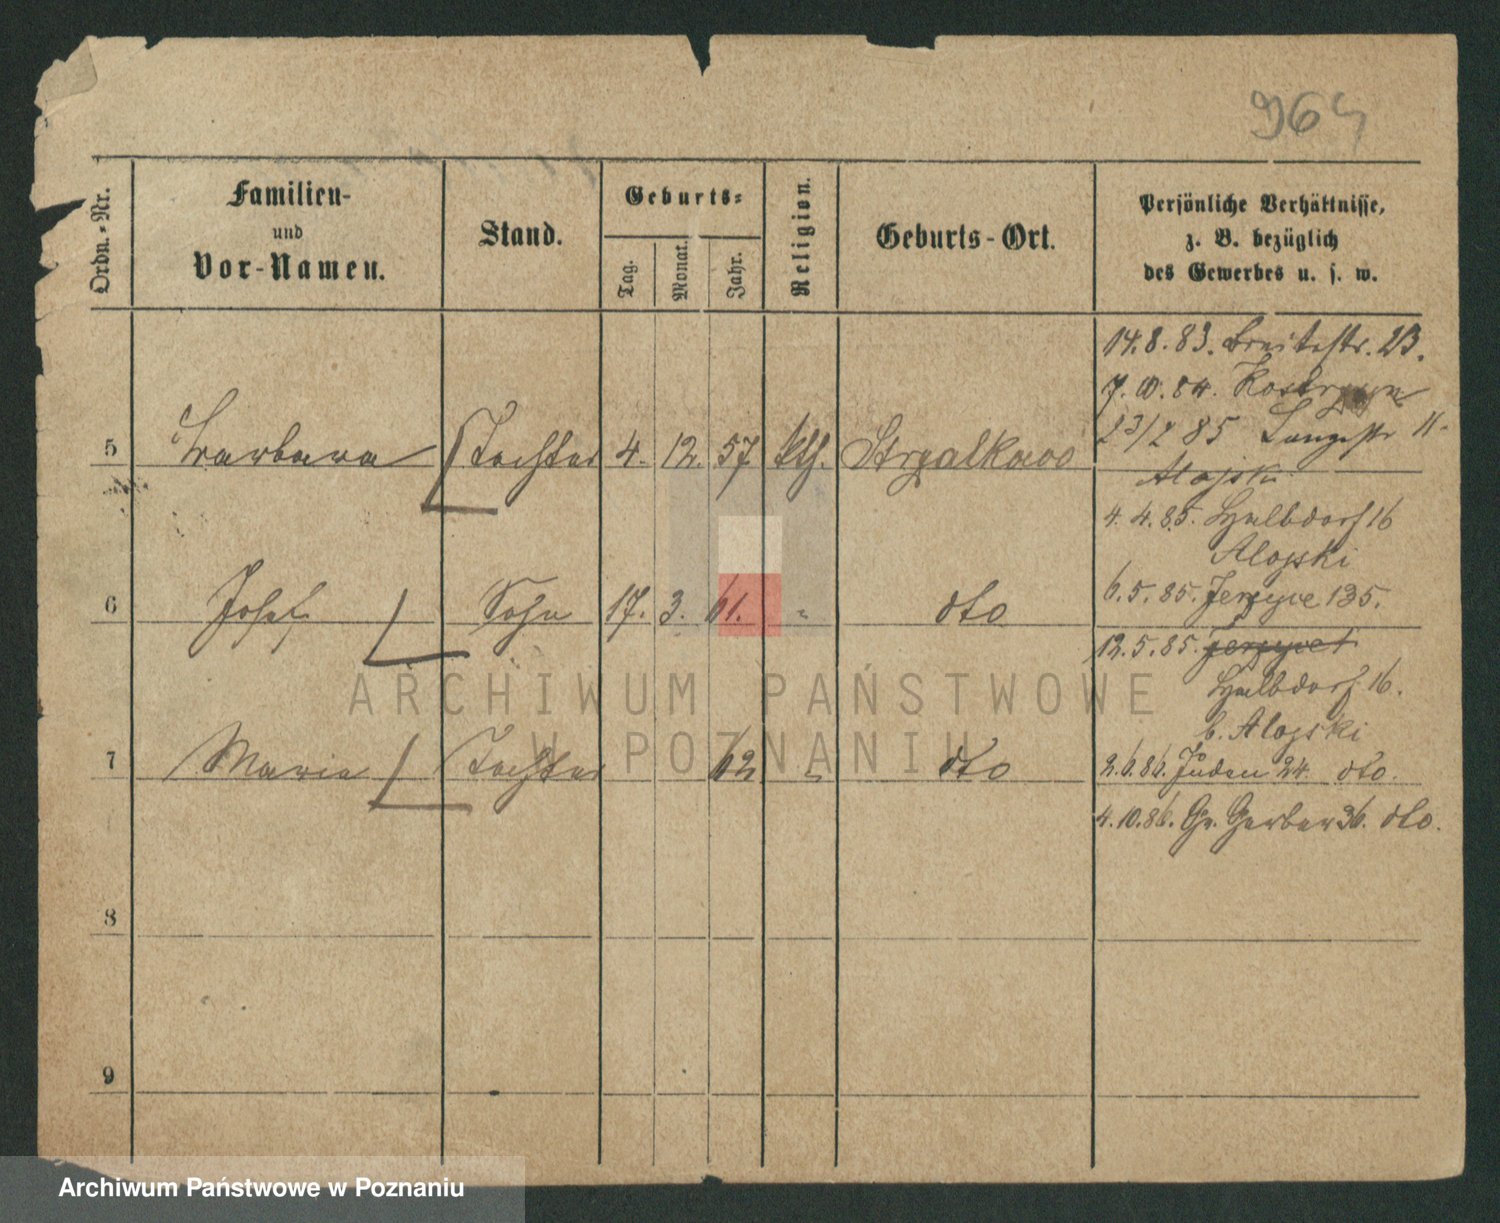 964
Ordn.-Nr.
Familien-
und
Vor-Namen.
Stand.
Geburts-
Tag.
Monat.
Jahr.
Religion.
Geburts-Ort.
Persönliche Verhältnisse,
z. B. bezüglich
des Gewerbes u. s. w.
14.8.83. Breitestr. 23.
7.10.84. Kostrzyn
23/2 85 Langestr 11.
5 Barbara Tochter 4. 12. 57 kth. Strzalkowo
Alojski
4.4.85. Halbdorf 16
Alojski
6 Josef Sohn 17. 3. 61. " dto
6.5.85. Jerzyce 135.
12.5.85. Jerzyce 1
Halbdorf 16.
b. Alojski
7 Maria Tochter 62 " dto
2.6.86. Juden 24. dto.
4.10.86. Gr. Gerber 36. dto.
8
9
ARCHIWUM PAŃSTWOWE
W POZNANIU
Archiwum Państwowe w Poznaniu